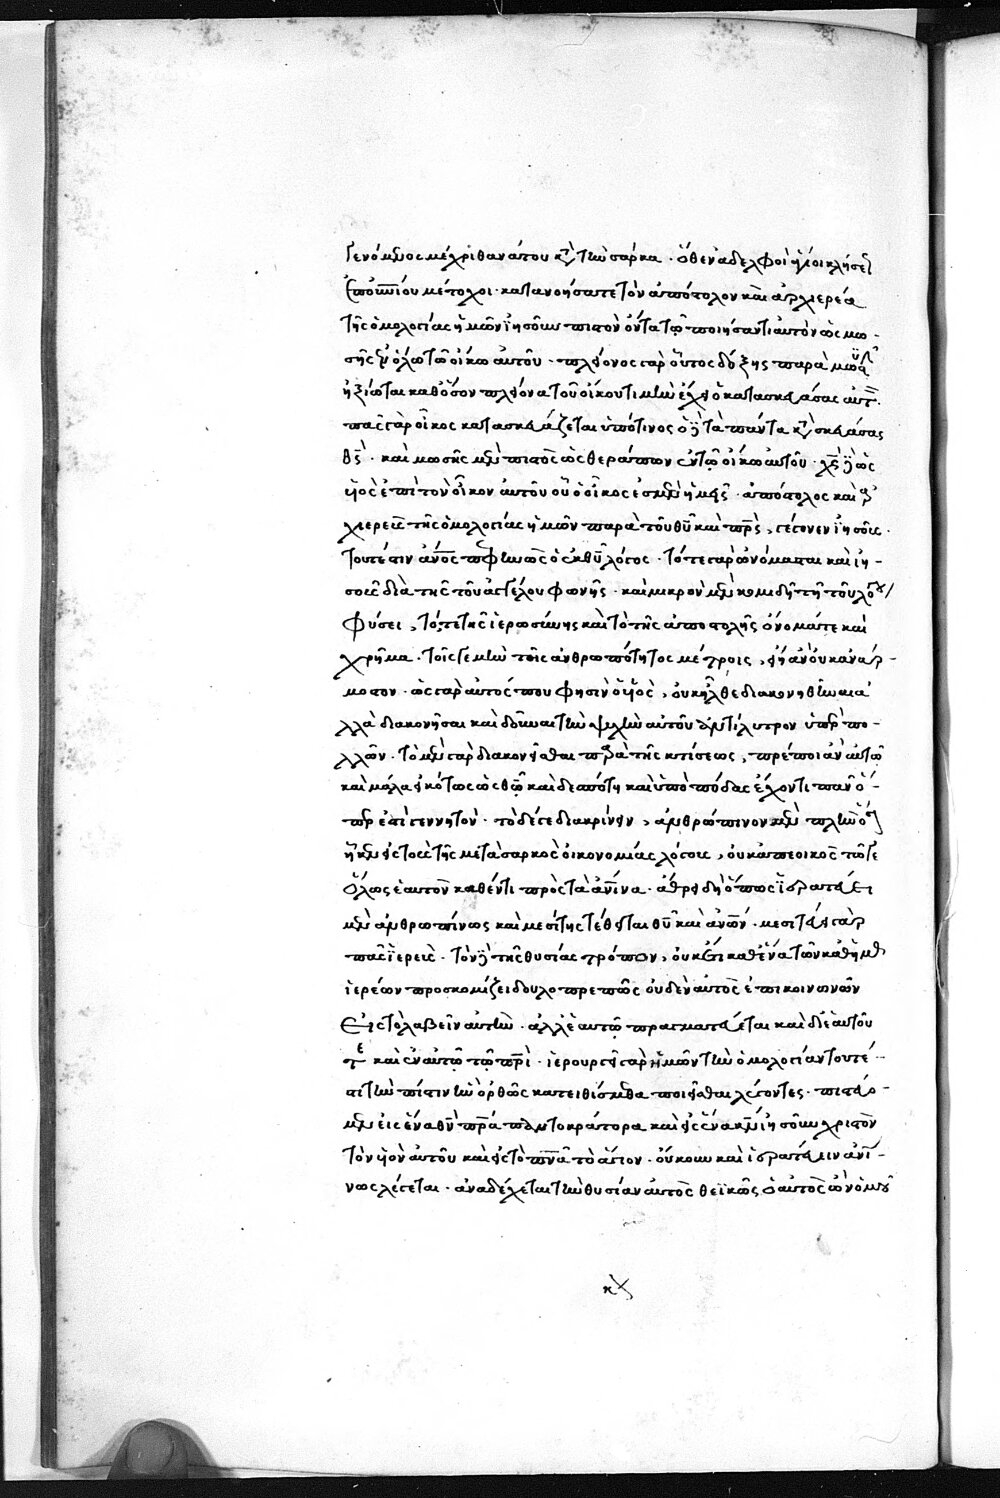 γενόμενος μέχρι θανάτου κατὰ τὴν σάρκα · ὅθεν ἀδελφοὶ ἅγιοι κλήσεως
ἐπουρανίου μέτοχοι · κατανοήσατε τὸν ἀπόστολον καὶ ἀρχιερέα
τῆς ὁμολογίας ἡμῶν ἰησοῦν πιστὸν ὄντα τῷ ποιήσαντι αὐτὸν ὡς μω-
σῆς ἐν ὅλῳ τῷ οἴκῳ αὐτοῦ · πλείονος γὰρ οὗτος δόξης παρὰ μωϋσῆν
ἠξίωται καθ ὅσον πλείονα τοῦ οἴκου τιμὴν ἔχει ὁ κατασκευάσας αὐτόν ·
πᾶς γὰρ οἶκος κατασκευάζεται ὑπό τινος ὁ δὲ τὰ πάντα κατασκευάσας
θς · καὶ μωσῆς μὲν πιστὸς ὡς θεράπων ἐν τῷ οἴκῳ αὐτοῦ · χς δὲ ὡς
υἱὸς ἐπὶ τὸν οἶκον αὐτοῦ οὗ ὁ οἶκος ἐσμὲν ἡμεῖς · ἀπόστολος καὶ ἀρ
χιερεὺς τῆς ὁμολογίας ἡμῶν παρὰ τοῦ θυ καὶ πρς, γέγονεν ἰησοῦς ·
τουτέστιν ἄνος πεφηνὼς ὁ ἐκ θυ λόγος · τότε γὰρ ὠνόμασται καὶ ἰη-
σοῦς διὰ τῆς τοῦ ἀγγέλου φωνῆς · καὶ μικρὸν μὲν κομιδῆ τῇ τοῦ λόγου
φύσει, τό, τε τῆς ἱερωσύνης καὶ τὸ τῆς ἀποστολῆς ὄνομά τε καὶ
χρῆμα · τοῖς γε μὴν τῆς ἀνθρωπότητος μέτροις, εἴη ἂν οὐκ ἀναρ-
μοστον · ὡς γὰρ αὐτός που φησὶν ὁ υἱὸς, οὐκ ἦλθε διακονηθῆναι ἀ
λλὰ διακονῆσαι καὶ δοῦναι τὴν ψυχὴν αὐτοῦ ἀντίλυτρον ὑπὲρ πο-
λλῶν · τὸ μὲν γὰρ διακονεῖσθαι παρὰ τῆς κτίσεως, πρέποι ἂν αὐτῷ
καὶ μάλα εἰκότως ὡς θω καὶ δεσπότῃ καὶ ὑπὸ πόδας ἔχοντι πᾶν ὅ-
περ ἐστὶ γεννητὸν · τὸ δέ γε διακρίνειν, ἀνθρώπινον μὲν πλὴν
ἥκει εἰς τοὺς τῆς μετὰ σαρκὸς οἰκονομίας λόγους, οὐκ ἀπεοικὸς τῷ γε
ὅλως ἑαυτὸν καθέντι πρὸς τὰ ἀνινα · ἄθρει δὴ ὅπως ἱερατεύει
μὲν ἀνθρωπίνως καὶ μεσίτης τέθειται θυ καὶ ἀνων · μεσιτεύει γὰρ
πᾶς ἱερεὺς · τὸν δὲ τῆς θυσίας τρόπον, οὐκέτι καθ ἕνα τῶν καθ ἡμᾶς
ἱερέων προσκομίζει δουλοπρεπῶς οὐδὲν αὐτὸς ἐπικοινωνῶν
εἰς τὸ λαβεῖν αὐτὴν · ἀλλ ἑαυτῷ πραγματεύεται καὶ δι ἑαυτοῦ
τε καὶ ἐν αὐτῷ τῷ πρὶ · ἱερουργεῖ γὰρ ἡμῶν τὴν ὁμολογίαν τουτέ-
στι τὴν πίστιν ἣν ὀρθῶς κατειθίσμεθα ποιεῖσθαι λέγοντες · πιστεύο-
μεν εἰς ἕνα θν πρα παντοκράτορα καὶ εἰς ἕνα κν ἰησοῦν χριστὸν
τὸν υἱὸν αὐτοῦ καὶ εἰς τὸ πνα τὸ ἅγιον · οὐκοῦν καὶ ἱερατεύειν ἀνί-
νως λέγεται · ἀναδέχεται τὴν θυσίαν αὐτὸς θεϊκῶς ὁ αὐτὸς ὢν ὁμοῦ